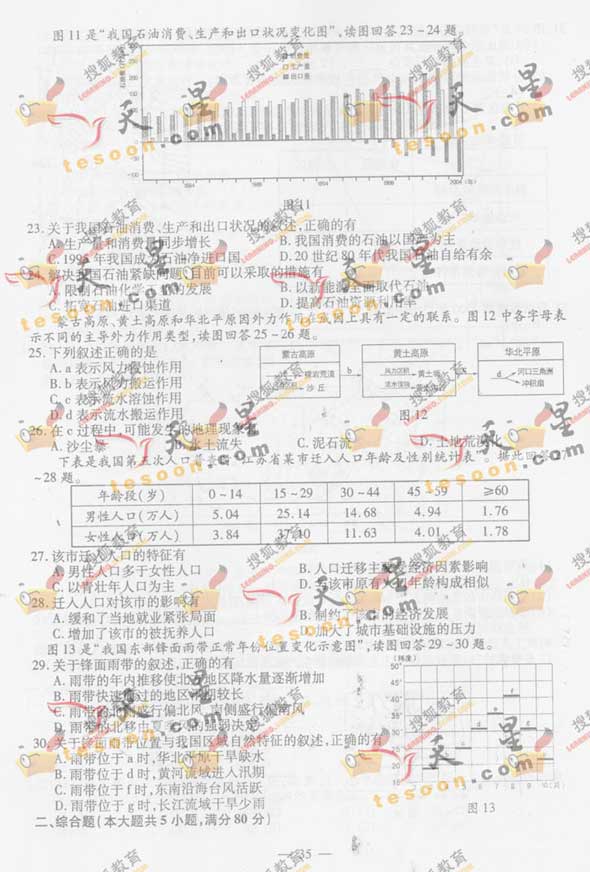 图 11 是“我国石油消费、生产和出口状况变化图”,读图回答 23 ~ 24 题。
生产量
出口量
1984
1994
2004 (年)
图 11
23. 关于我国石油消费、生产和出口状况的叙述,正确的有
A. 生产量和消费量同步增长
B. 我国消费的石油以国产为主
C. 年我国成为石油净进口国
D. 20 世纪 80 年代我国石油自给有余
24. 解决我国石油紧缺问题,目前可以采取的措施有
A. 限制石油化学工业的发展
B. 以新能源全面取代石油
C. 拓宽石油进口渠道
D. 提高石油资源利用率
蒙古高原、黄土高原和华北平原因外力作用在成因上具有一定的联系。图 12 中各字母表
示不同的主导外力作用类型,读图回答 25 ~ 26 题。
25. 下列叙述正确的是
A. a 表示风力侵蚀作用
B. b 表示风力搬运作用
C. c 表示流水溶蚀作用
D. d 表示流水搬运作用
蒙古高原
裸岩荒漠
沙 丘
b
黄土高原
风力沉积
黄土塬
流水侵蚀
华北平原
d
河口三角洲
冲积扇
图 12
26. 在 c 过程中,可能发生的地理现象有
A. 沙尘暴
B. 水土流失
C. 泥石流
D. 土地荒漠化
下表是“我国第五次人口普查时,江苏省某市迁入人口年龄及性别统计表”。据此回答 27
~ 28 题。
年龄段(岁) 0 ~ 14 15 ~ 29 30 ~ 44 45 ~ 59 ≥60
男性人口(万人) 5.04 25.14 14.68 4.94 1.76
女性人口(万人) 3.84 37.10 11.63 4.01 1.78
27. 该市迁入人口的特征有
A. 男性人口多于女性人口
B. 人口迁移主要受经济因素影响
C. 以青壮年人口为主
D. 与该市原有人口年龄构成相似
28. 迁入人口对该市的影响有
A. 缓和了当地就业紧张局面
B. 制约了该市的经济发展
C. 增加了该市的被抚养人口
D. 加大了城市基础设施的压力
图 13 是“我国东部锋面雨带正常年份位置变化示意图”,读图回答 29 ~ 30 题。
29. 关于锋面雨带的叙述,正确的有
A. 雨带的年内推移使北方地区降水量逐渐增加
B. 雨带快速通过的地区雨期较长
C. 雨带的北侧盛行偏北风,南侧盛行偏南风
D. 雨带的北移由夏季风的强弱决定
30. 关于锋面雨带位置与我国区域自然特征的叙述,正确的有
A. 雨带位于 a 时,华北平原干旱缺水
B. 雨带位于 d 时,黄河流域进入汛期
C. 雨带位于 f 时,东南沿海台风活跃
D. 雨带位于 g 时,长江流域干旱少雨
(纬度)
50
45
40
35
30
25
20
15
5 6 7 8 9 10 (月)
图 13
二、综合题(本大题共 5 小题,满分 80 分)
搜狐教育
LEARNING.SOHU.COM
天星
tesoon.com